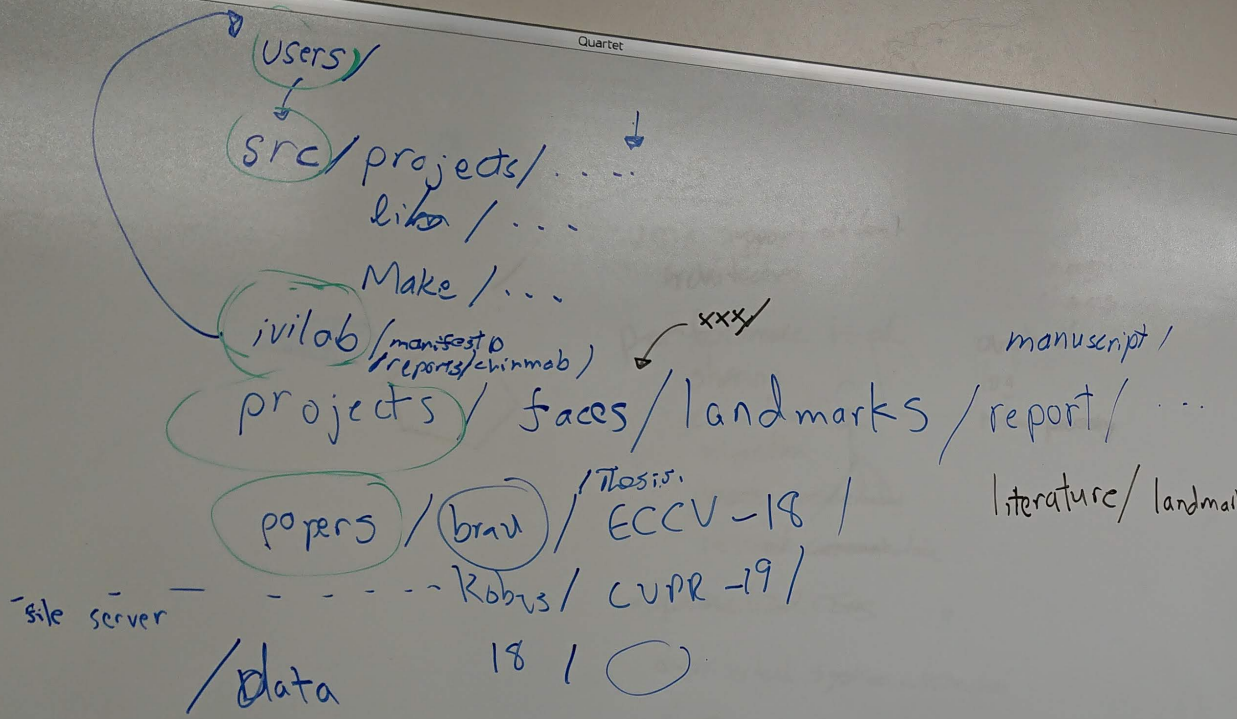 Quartet
users/
src/projects/.....
lib/...
Make/...
ivilab/manifesto
/reports/chinmob)
xxx/
manuscript/
projects/ faces/landmarks/report/...
/Thesis.
papers/brau/ECCV-18/
literature/landmar
Kobus/CVPR-19/
file server
18/
/data